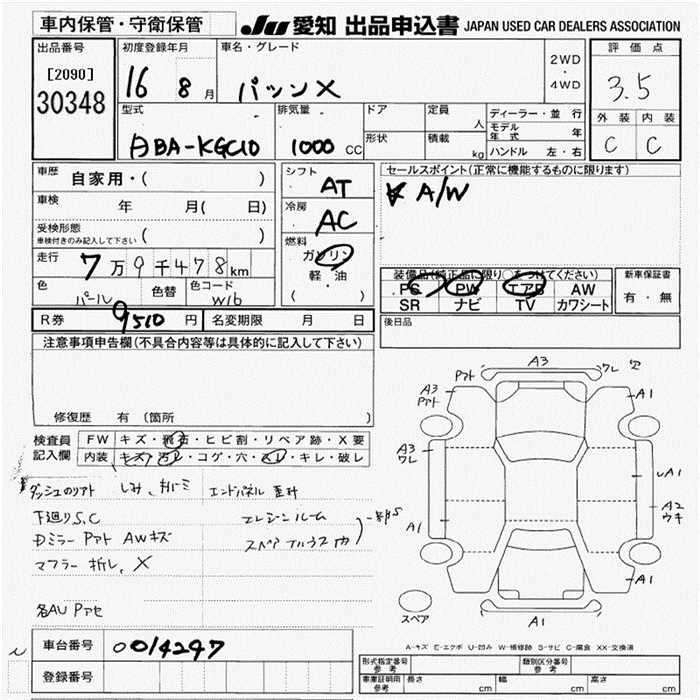 車内保管・守衛保管 JU 愛知 出品申込書 JAPAN USED CAR DEALERS ASSOCIATION
出品番号 初度登録年月 車名・グレード 評価点
[2090] 16 8月 パッソX 2WD・4WD 3.5
30348
型式 排気量 ドア 定員 人 ディーラー・並行 外装 内装
モデル年式 年
DBA-KGC10 1000 CC 形状 積載 kg ハンドル 左・右 C C
車歴 自家用・( ) シフト AT セールスポイント(正常に機能するものに限ります)
車検 年 月( 日) 冷房 AC A/W
受検形態 ( )
車検付きのみ記入して下さい
燃料 ガソリン
走行 7万9千478km 軽・油
( )
装備品(純正品に限り○をつけてください) 新車保証書
色 パール 色替 色コード W16 PS PW エアB AW 有・無
SR ナビ TV カワシート
R券 9510 円 名変期限 月 日 後日品
注意事項申告欄(不具合内容等は具体的に記入して下さい)
修復歴 有 (箇所 )
検査員記入欄 FW キズ・飛石・ヒビ割・リペア跡・X要
内装 キズ・汚レ・コゲ・穴・スレ・キレ・破レ
しみ、
下廻りS,C エンジンルーム
Dミラー アト AWキズ
マフラー 折レ、X
A3
A3
A1
A3
ワレ
A1
A2
ウキ
A1
A1
A1
スペア
A-キズ E-エクボ U-凹み W-補修跡 S-サビ C-腐食 XX-交換済
車台番号 0014247
登録番号
形式指定番号 参考 類別区分番号 参考
車庫証明用 参考 長さ cm 幅 cm 高さ cm